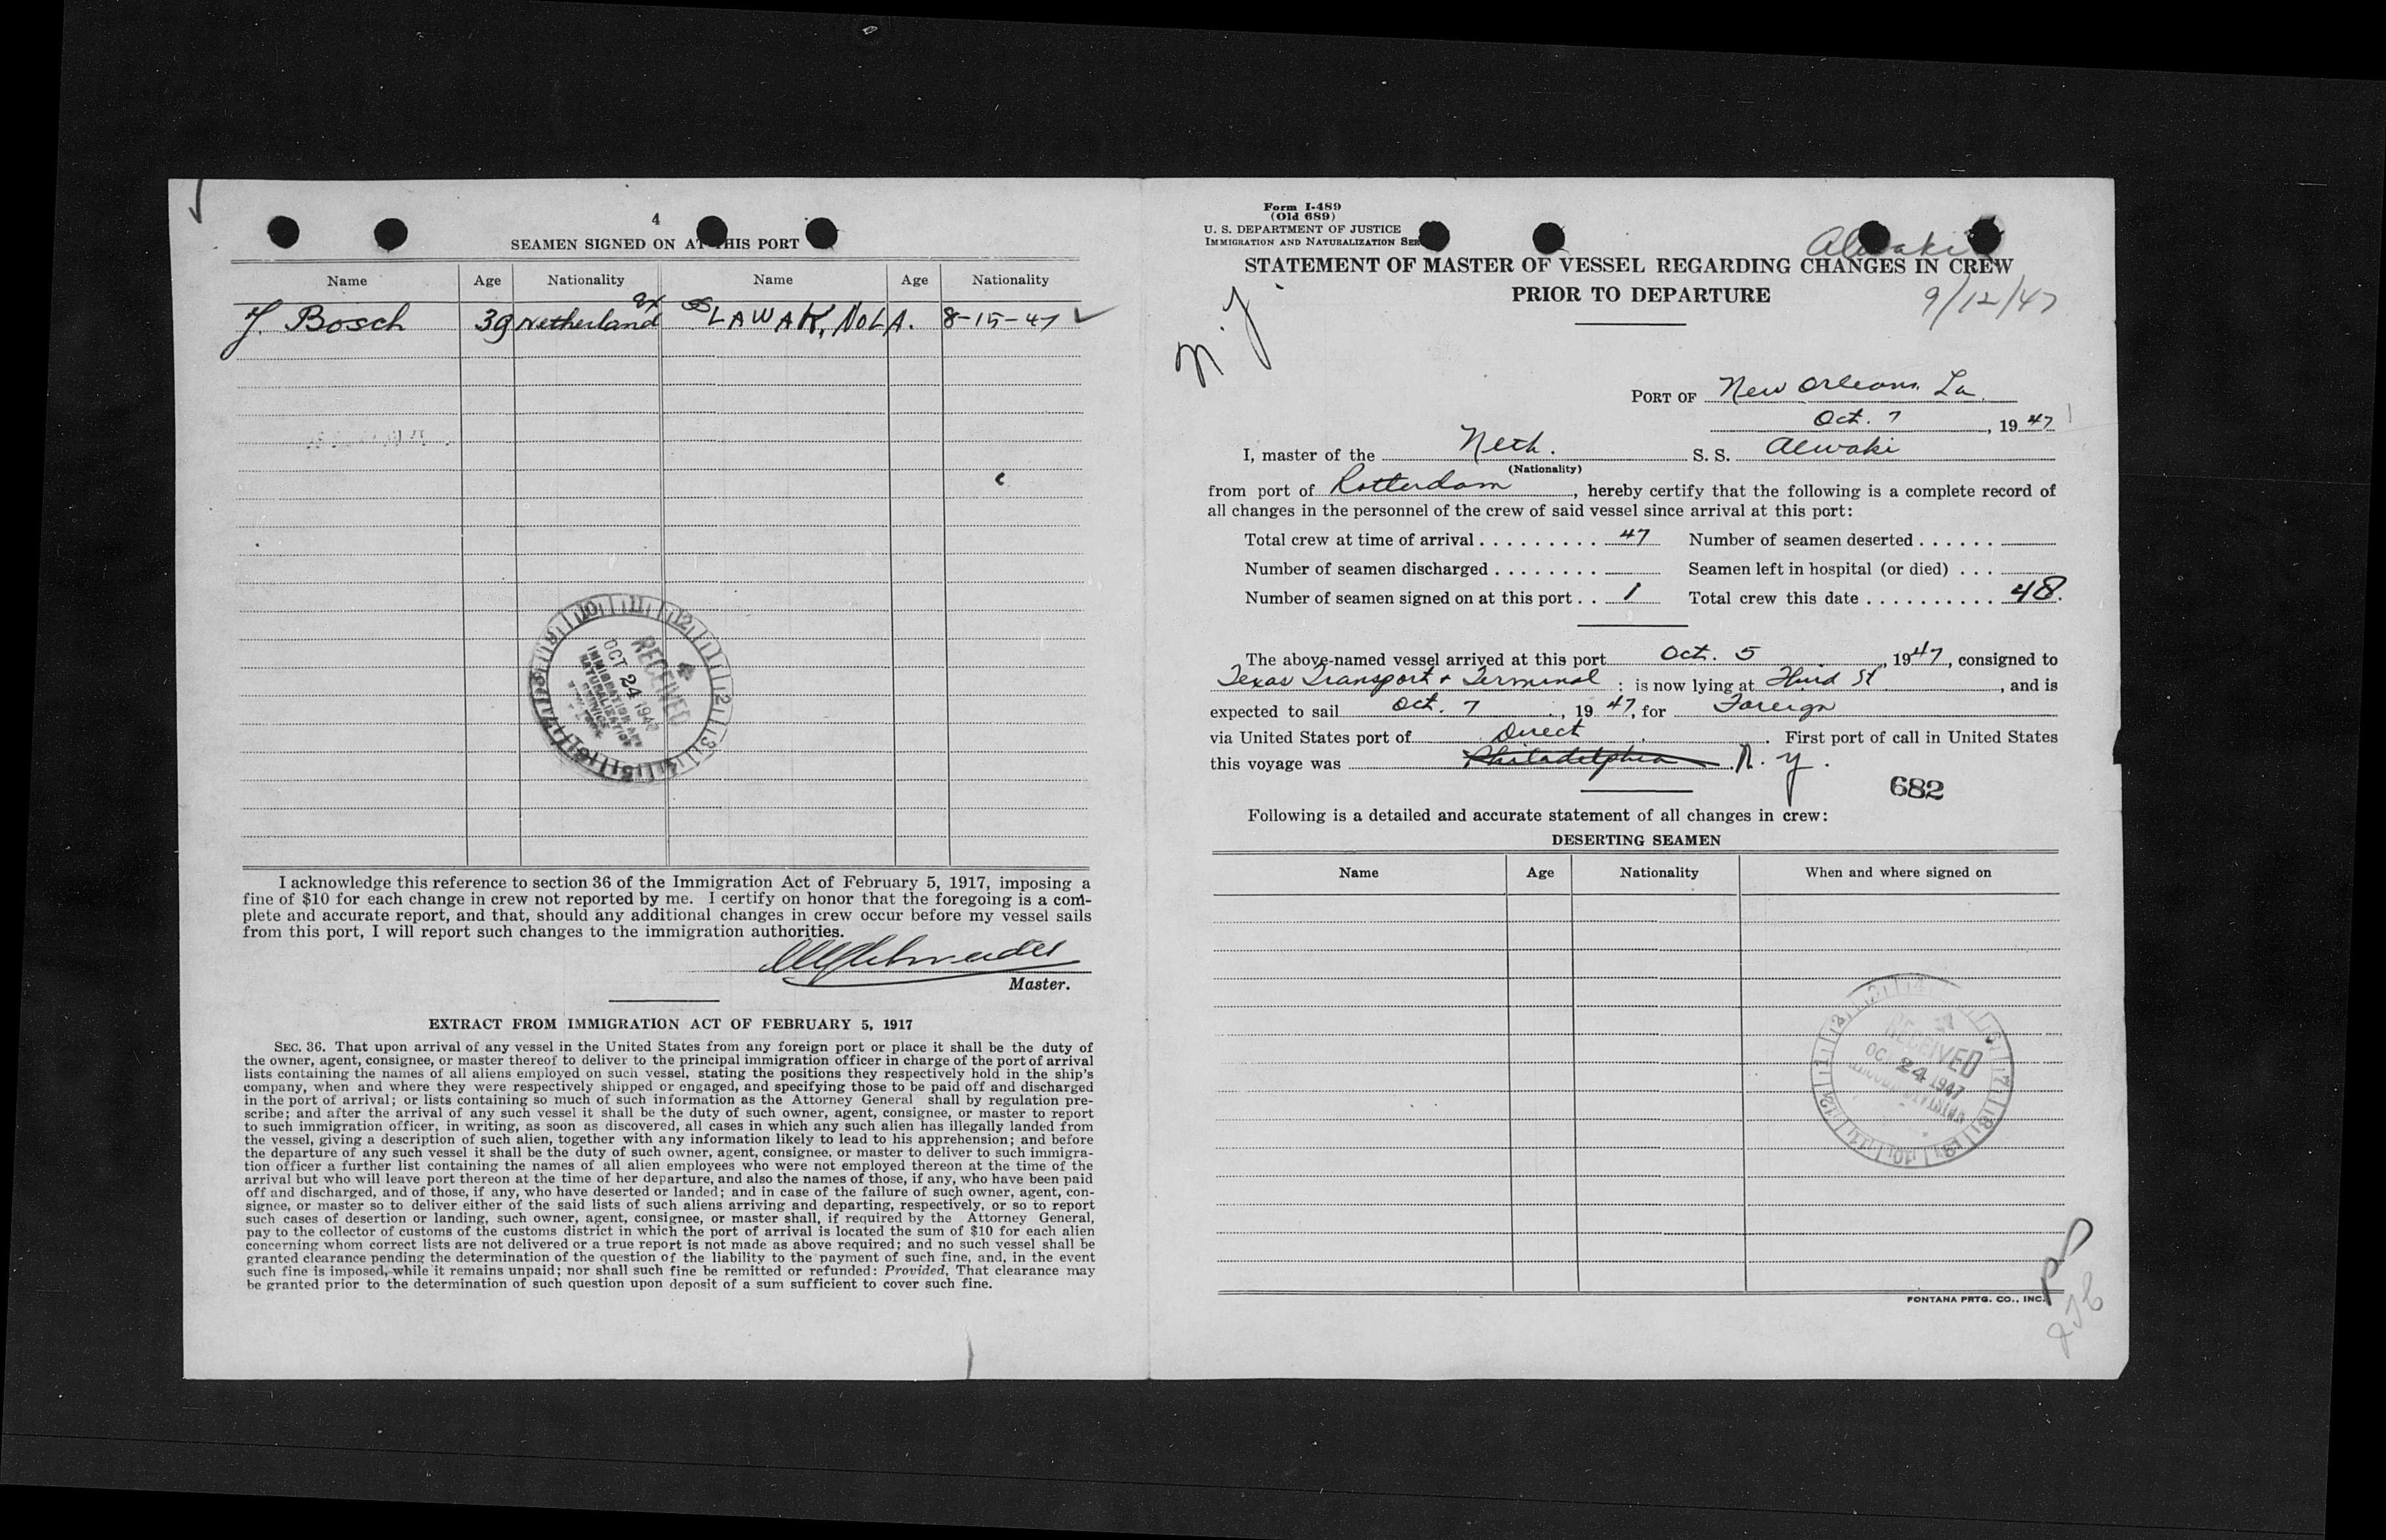 4
SEAMEN SIGNED ON AT THIS PORT
Name Age Nationality Name Age Nationality
J. Bosch 39 Netherland ex SS LAWAK, NOLA. 8-15-47
RECEIVED
OCT 24 1947
IMMIGRATION AND
NATURALIZATION
SERVICE
I acknowledge this reference to section 36 of the Immigration Act of February 5, 1917, imposing a
fine of $10 for each change in crew not reported by me. I certify on honor that the foregoing is a com-
plete and accurate report, and that, should any additional changes in crew occur before my vessel sails
from this port, I will report such changes to the immigration authorities.
Master.
EXTRACT FROM IMMIGRATION ACT OF FEBRUARY 5, 1917
SEC. 36. That upon arrival of any vessel in the United States from any foreign port or place it shall be the duty of
the owner, agent, consignee, or master thereof to deliver to the principal immigration officer in charge of the port of arrival
lists containing the names of all aliens employed on such vessel, stating the positions they respectively hold in the ship's
company, when and where they were respectively shipped or engaged, and specifying those to be paid off and discharged
in the port of arrival; or lists containing so much of such information as the Attorney General shall by regulation pre-
scribe; and after the arrival of any such vessel it shall be the duty of such owner, agent, consignee, or master to report
to such immigration officer, in writing, as soon as discovered, all cases in which any such alien has illegally landed from
the vessel, giving a description of such alien, together with any information likely to lead to his apprehension; and before
the departure of any such vessel it shall be the duty of such owner, agent, consignee, or master to deliver to such immigra-
tion officer a further list containing the names of all alien employees who were not employed thereon at the time of the
arrival but who will leave port thereon at the time of her departure, and also the names of those, if any, who have been paid
off and discharged, and of those, if any, who have deserted or landed; and in case of the failure of such owner, agent, con-
signee, or master so to deliver either of the said lists of such aliens arriving and departing, respectively, or so to report
such cases of desertion or landing, such owner, agent, consignee, or master shall, if required by the Attorney General,
pay to the collector of customs of the customs district in which the port of arrival is located the sum of $10 for each alien
concerning whom correct lists are not delivered or a true report is not made as above required; and no such vessel shall be
granted clearance pending the determination of the question of the liability to the payment of such fine, and, in the event
such fine is imposed, while it remains unpaid; nor shall such fine be remitted or refunded: Provided, That clearance may
be granted prior to the determination of such question upon deposit of a sum sufficient to cover such fine.
Form I-489
(Old 689)
U. S. DEPARTMENT OF JUSTICE
IMMIGRATION AND NATURALIZATION SER
Alwaki
STATEMENT OF MASTER OF VESSEL REGARDING CHANGES IN CREW
PRIOR TO DEPARTURE
9/12/47
N. Y.
PORT OF New Orleans La.
Oct. 7, 1947
I, master of the Neth. S. S. Alwaki
(Nationality)
from port of Rotterdam, hereby certify that the following is a complete record of
all changes in the personnel of the crew of said vessel since arrival at this port:
Total crew at time of arrival 47 Number of seamen deserted
Number of seamen discharged Seamen left in hospital (or died)
Number of seamen signed on at this port 1 Total crew this date 48.
The above-named vessel arrived at this port Oct. 5, 1947, consigned to
Texas Transport & Terminal : is now lying at Third St, and is
expected to sail Oct. 7, 1947, for Foreign
via United States port of Direct. First port of call in United States
this voyage was Philadelphia N. Y.
682
Following is a detailed and accurate statement of all changes in crew:
DESERTING SEAMEN
Name Age Nationality When and where signed on
RECEIVED
OCT 24 1947
FONTANA PRTG. CO., INC.